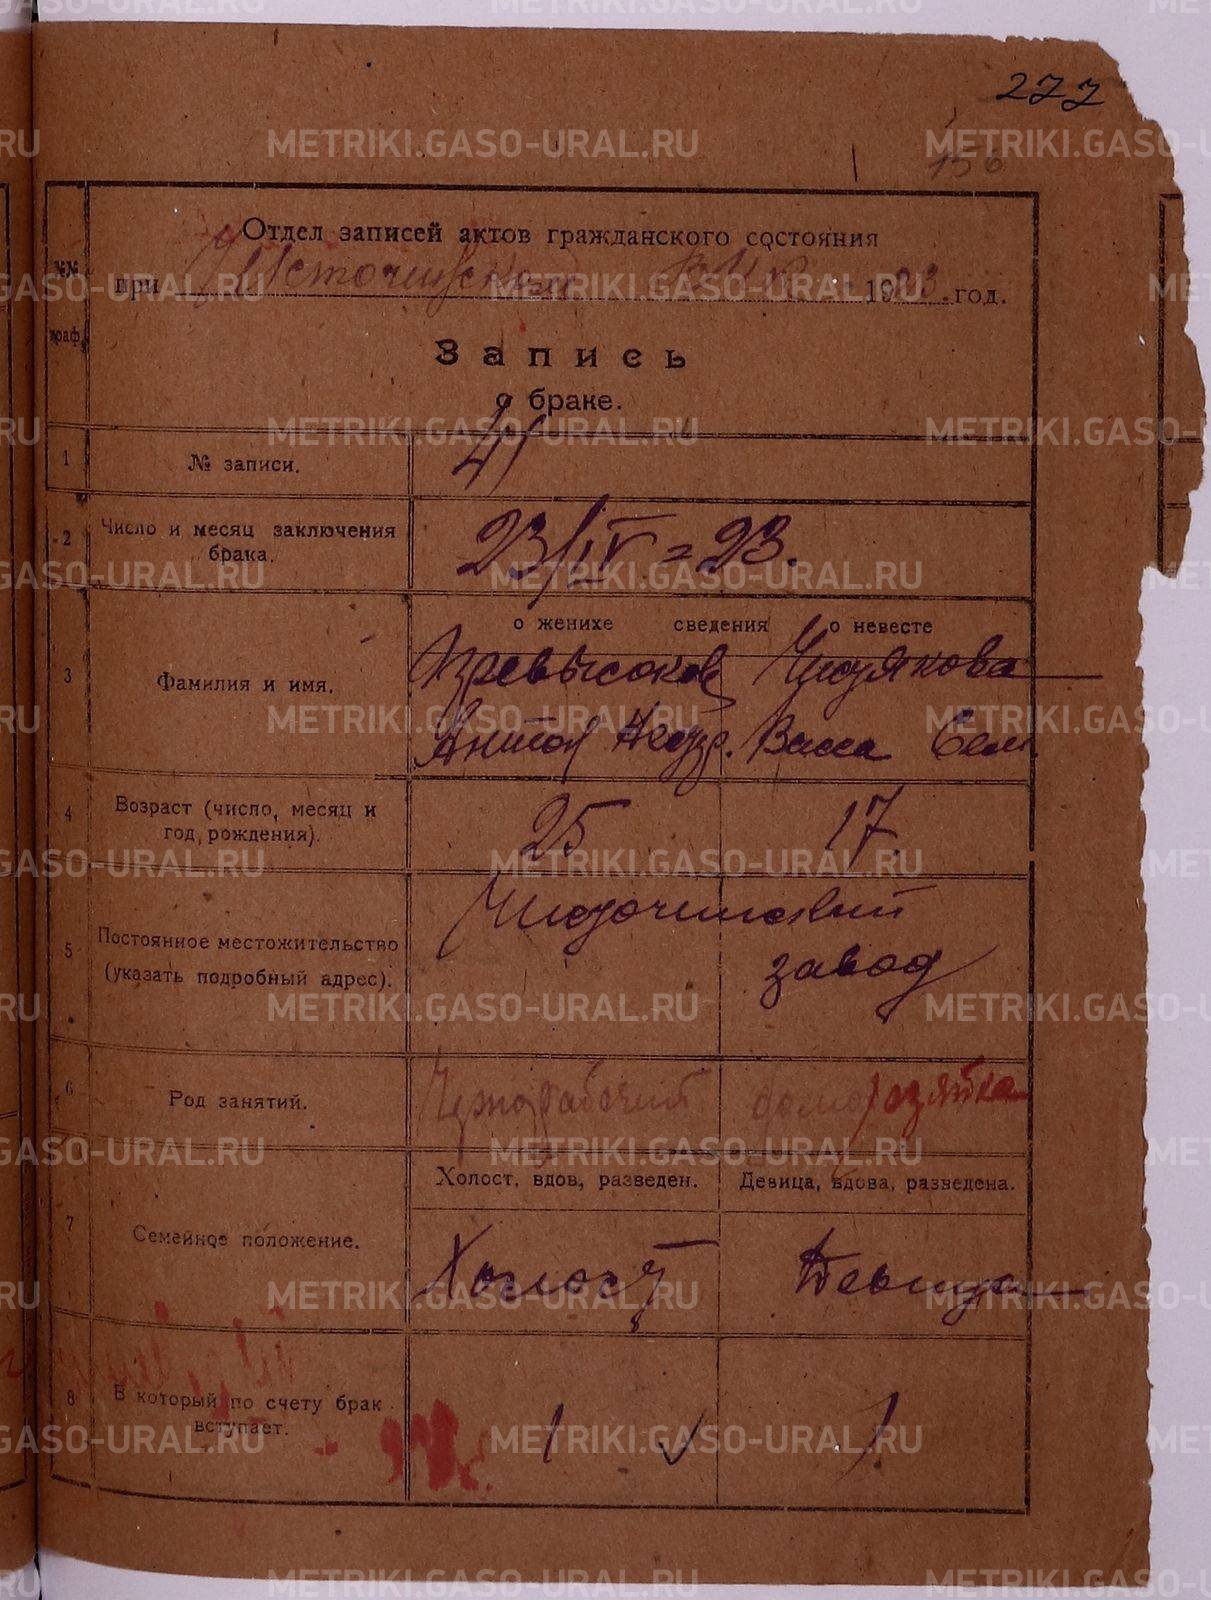 277
156
Отдел записей актов гражданского состояния
№№ граф
при 1923 год.
Запись
о браке.
1 № записи. 41
2 Число и месяц заключения брака. 23/IV = 23.
о женихе сведения о невесте
3 Фамилия и имя.
Превысоков
Антон Васса Сем.
4 Возраст (число, месяц и год рождения). 25 17
5 Постоянное местожительство (указать подробный адрес).
завод
6 Род занятий. Чернорабочий домохозяйка
Холост, вдов, разведен. Девица, вдова, разведена.
7 Семейное положение. Холост Девица
8 В который по счету брак вступает. 1 1
METRIKI.GASO-URAL.RU